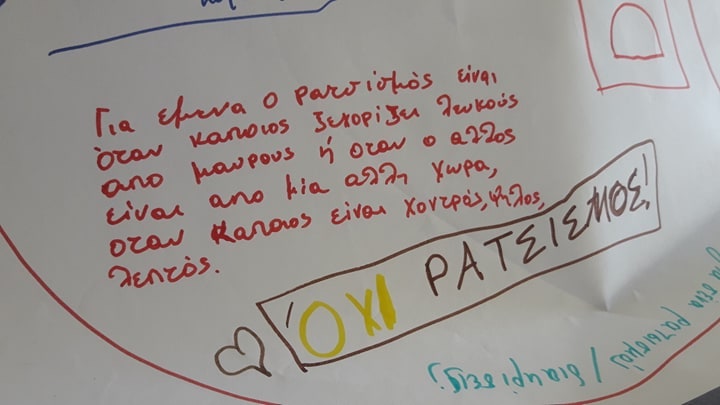 Για εμενα ο ρατσισμός είναι
όταν καποιος ξεχορίζει λευκούς
απο μαυρους ή οταν ο αλλος
είναι απο μία αλλη χωρα,
οταν καποιος είναι χοντρός, ψηλος,
λεπτός.
ΌΧΙ ΡΑΤΣΙΣΜΟΣ!
ρατσισμός / διακρίσεις;